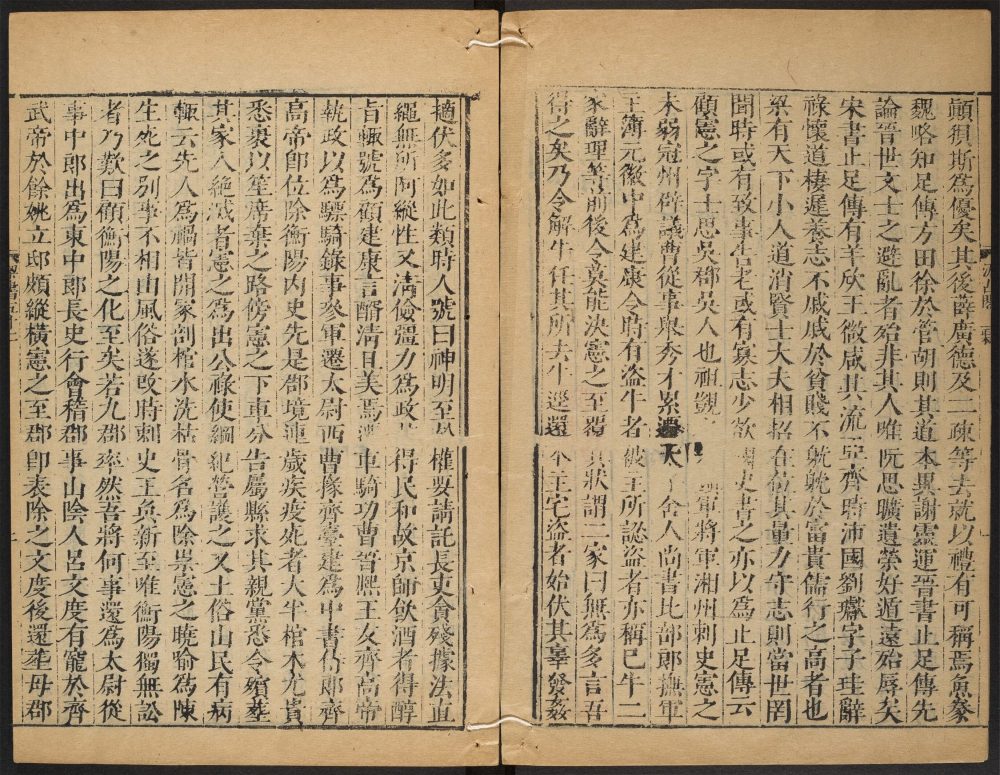 顚狽斯爲優矣其後薛廣德及二疎等去就以禮有可稱焉魚豢
魏略知足傳方田徐於管胡則其道本異謝靈運晉書止足傳先
論晉世文士之避亂者殆非其人唯阮思曠遺榮好遁遠殆辱矣
宋書止足傳有羊欣王微咸其流亞齊時沛國劉瓛字子珪辭
祿懷道棲遲養志不戚戚於貧賤不躭躭於富貴儒行之高者也
梁有天下小人道消賢士大夫相招在位其量力守志則當世罔
聞時或有致事告老或有寡志少欲國史書之亦以爲止足傳云
顧憲之字士思吳郡吳人也祖覬軍將軍湘州刺史憲之
未弱冠州辟議曹從事舉秀才累遷太舍人尚書比部郎撫軍
主簿元徽中爲建康令時有盜牛者被主所認盜者亦稱已牛二
家辭理等前後令莫能決憲之至覆其狀謂二家曰無爲多言吾
得之矣乃令解牛任其所去牛逕還本主宅盜者始伏其辜發姦
擿伏多如此類時人號曰神明至於權要請託長吏貪殘據法直
繩無所阿縱性又淸儉彊力爲政甚得民和故京師飲酒者得醇
旨輒號爲顧建康言醑淸且美焉遷車騎功曹晉熙王友齊高帝
執政以爲驃騎錄事參軍遷太尉西曹掾齊臺建爲中書侍郎齊
高帝卽位除衡陽內史先是郡境連歲疾疫死者大半棺木尤貴
悉裹以笙席棄之路傍憲之下車分告屬縣求其親黨悉令殯葬
其家人絕滅者憲之爲出公祿使綱紀營護之又土俗山民有病
輒云先人爲禍皆開冢剖棺水洗枯骨名爲除祟憲之曉喻爲陳
生死之別事不相由風俗遂改時刺史王奐新至唯衡陽獨無訟
者乃歎曰顧衡陽之化至矣若九郡率然吾將何事還爲太尉從
事中郎出爲東中郎長史行會稽郡事山陰人呂文度有寵於齊
武帝於餘姚立邸頗縱橫憲之至郡卽表除之文度後還葬母郡